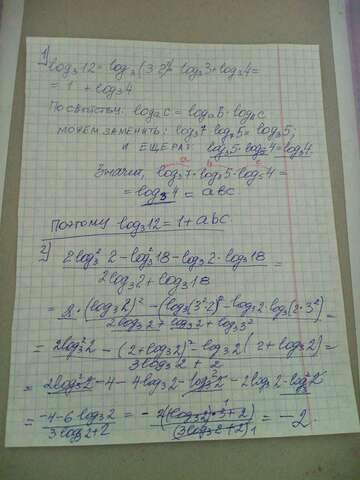 1) log₃12 = log₃(3·2²) = log₃3 + log₃4 =
= 1 + log₃4
По свойствам: logₐc = logₐb · log_b c
можем заменить: log₃7 · log₇5 = log₃5;
и ещё раз: log₃5 · log₅4 = log₃4
a b c
Значит, log₃7 · log₇5 · log₅4 =
= log₃4 = abc
Поэтому log₃12 = 1 + abc
2) (2log₃²2 - log₃²18 - log₃2 · log₃18) / (2log₃2 + log₃18) =
= (2·(log₃2)² - (log₃(3²·2))² - log₃2 log₃(2·3²)) / (2log₃2 + log₃2 + log₃3²) =
= (2log₃²2 - (2+log₃2)² - log₃2(2+log₃2)) / (3log₃2 + 2) =
= 2log₃²2 - 4 - 4log₃2 - log₃²2 - 2log₃2 - log₃²2
= (-4-6log₃2) / (3log₃2+2) = -2(log₃2·3+2) / (3log₃2+2) = -2